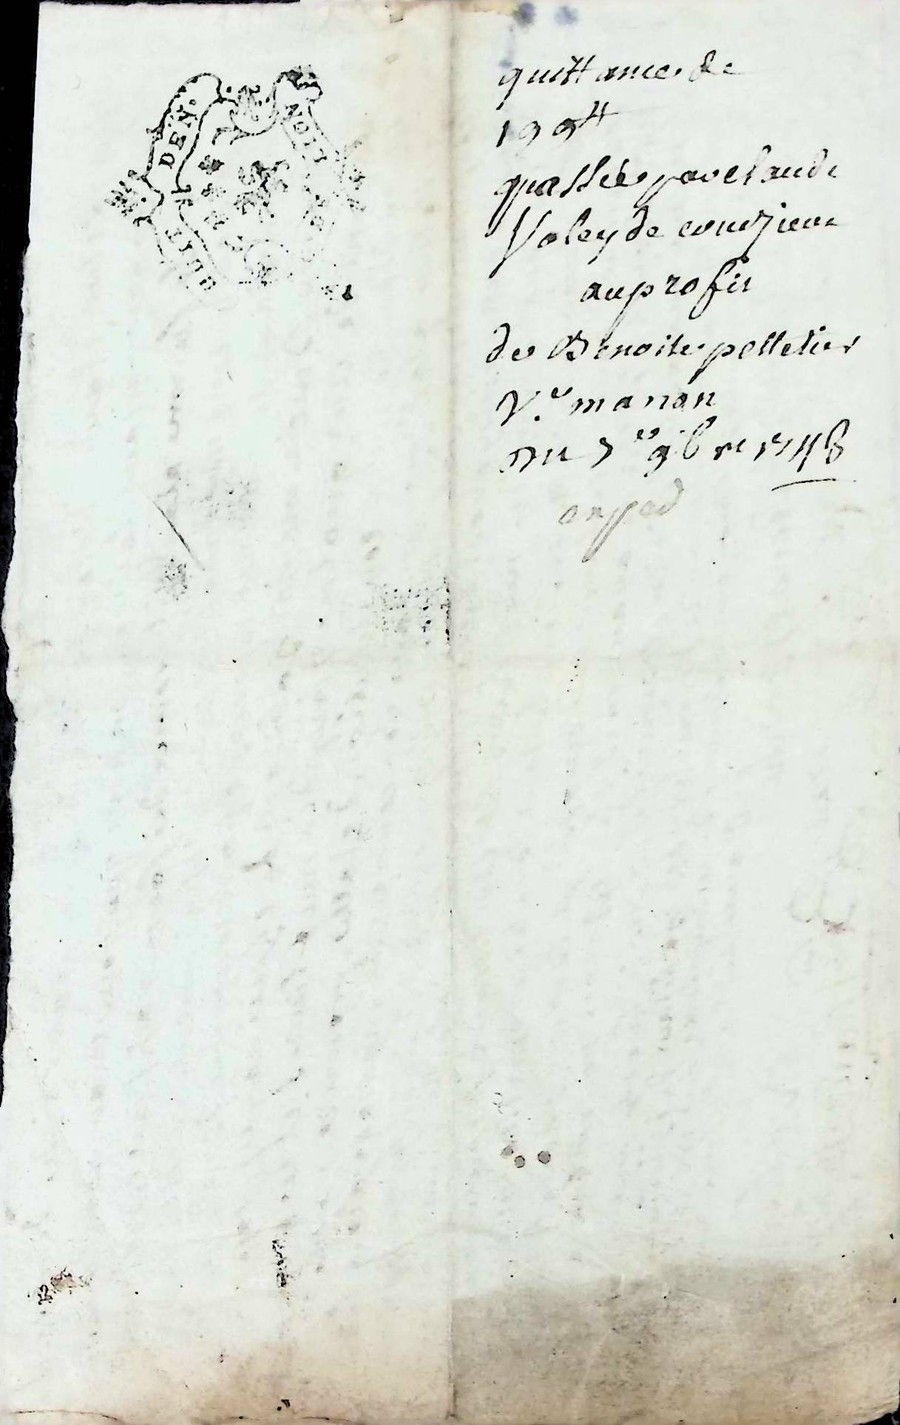 HUIT DEN.
LION
quittance de
199tt
passée par claude
Valey de courzieux
au profit
de Benoite pelletier
V.e manan
Du 7e 9bre 1748
exped